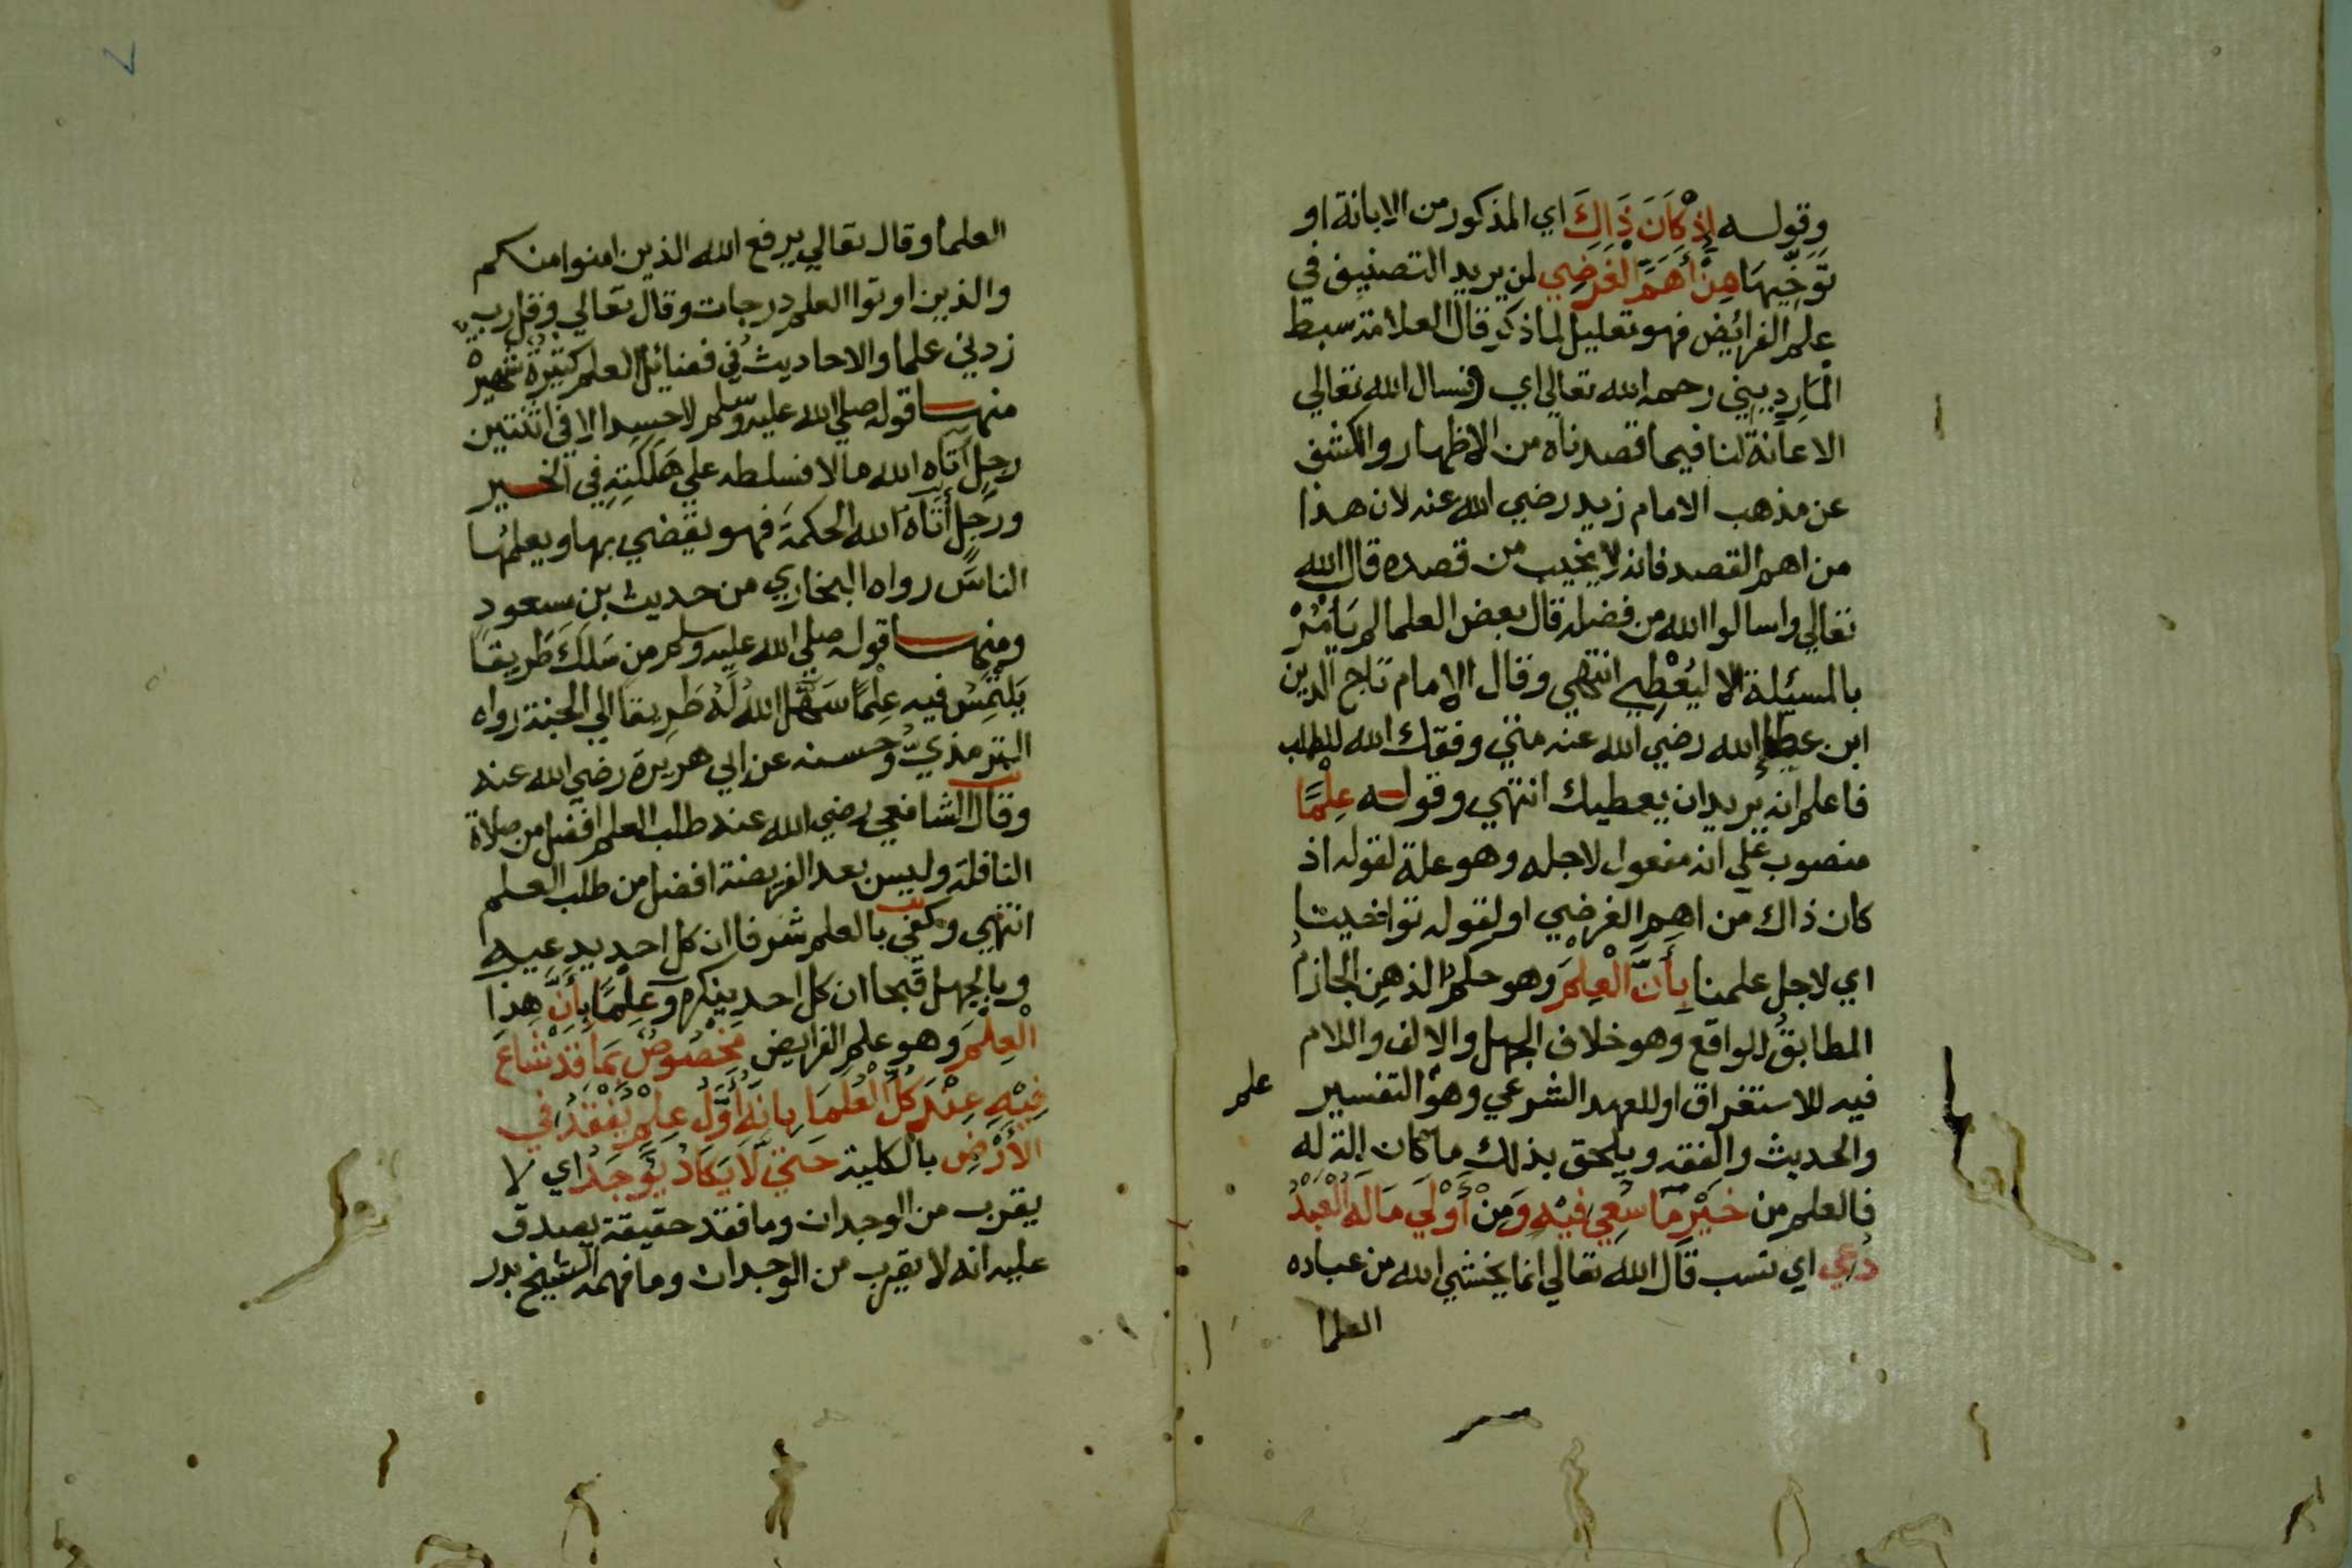 وقوله إذ كَانَ ذَاكَ اي المذكور من الابانة او
توخيها مِنْ أَهَمِّ الغَرَضِي لمن يريد التصنيف في
علم الفرائض فهو تعليل لما ذكر قال العلامة سبط
المارديني رحمه الله تعالى اي فنسال الله تعالي
الاعانة لنا فيما قصدناه من الاظهار والكشف
عن مذهب الامام زيد رضي الله عنه لان هذا
من اهم القصد فانه لا يخيب من قصده قال الله
تعالي واسالوا الله من فضله قال بعض العلما لم يَامُرْ
بالمسيلة الا ليُعْطِي انتهي وقال الامام تاج الدين
ابن عطا الله رضي الله عنه متي وفقك الله للطلب
فاعلم انه يريد ان يعطيك انتهي وقوله عِلْمًا
منصوب علي انه مفعول لاجله وهو علة لقوله اذ
كان ذاك من اهم الغرضي او لقوله توافخيتا
اي لاجل علمنا بِأَنَّ الْعِلْمَ وهو حكم الذهن الجازم
المطابق للواقع وهو خلاف الجهل والالف واللام
فيه للاستغراق او للعهد الشرعي وهو التفسير
علم
والحديث والفقه ويلحق بذلك ما كان الة له
فالعلم من خَيْرِ مَا سُعِي فِيْهِ وَمِنْ أَوْلَي مَا لَهُ الْعَبْدُ
دُعِي اي نسب قال الله تعالي انما يخشي الله من عباده
العلما
العلما وقال تعالي يرفع الله الذين امنوا منكم
والذين اوتوا العلم درجات وقال تعالي وقل رب
زدني علما والاحاديث في فضائل العلم كثيرة شهيرة
منها قوله صلي الله عليه وسلم لا حسد الا في اثنتين
رجل آتاه الله مالا فسلطه علي هَلَكَتِهِ في الخير
ورجل آتاه الله الحكمة فهو يقضي بها ويعلمها
الناس رواه البخاري من حديث بن مسعود
ومنها قوله صلي الله عليه وسلم من سَلَكَ طَرِيقًا
يَلتَمِسُ فيه عِلْمًا سَهَّلَ اللهُ لَهُ طَرِيقا الي الجنة رواه
الترمذيّ وحسنه عن ابي هريرة رضي الله عنه
وقال الشافعي رضي الله عنه طلب العلم افضل من صلاة
النافلة وليس بعد الفريضة افضل من طلب العلم
انتهي وكفي بالعلم شرفا ان كل احد يدعيه
وبالجهل قبحا ان كل احد ينكره وَعِلْمًا بِأَنَّ هذا
الْعِلْمَ وهو علم الفرايض مَخْصُوصٌ بِمَا قَدْ شَاعَ
فِيْهِ عِنْدَ كُلِّ الْعُلَمَا بِانَّهُ أَوَّلُ عِلْمٍ يُفْقَدُ فِي
الأَرْضِ بالكلية حَتَّي لَا يَكَادُ يُوْجَدُ اي لا
يقرب من الوجدان وما فقد حقيقة يصدق
عليه انه لا يقرب من الوجدان وما فهمه الشيخ بدر